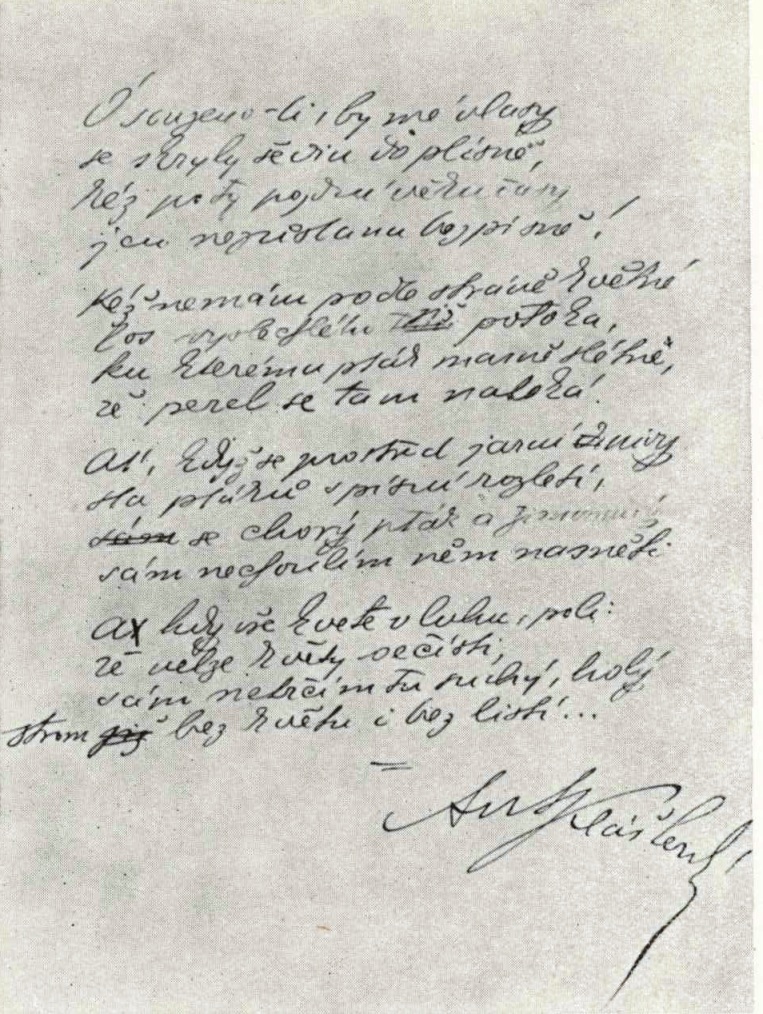 Ó souzeno-li, by mé vlasy
se skryly šedin do plísně,
kéž poty pojdou věku časy
jen neposlanu bezpísně!
Kéž nemám podle stráně květné
žos vyschlého potoka,
ku kterému pták marně slétne,
že perel se tam naloká!
Ať, když se prostřed jarní
sta ptáků s písní rozletí,
sám se chorý pták a
sám nechoulím něm na sněti.
Ať kdy vše kvete v luhu, poli:
že nelze květy sečísti,
sám netrčím tu suchý, holý
strom již bez květu i bez listí...
Ant Klášterský